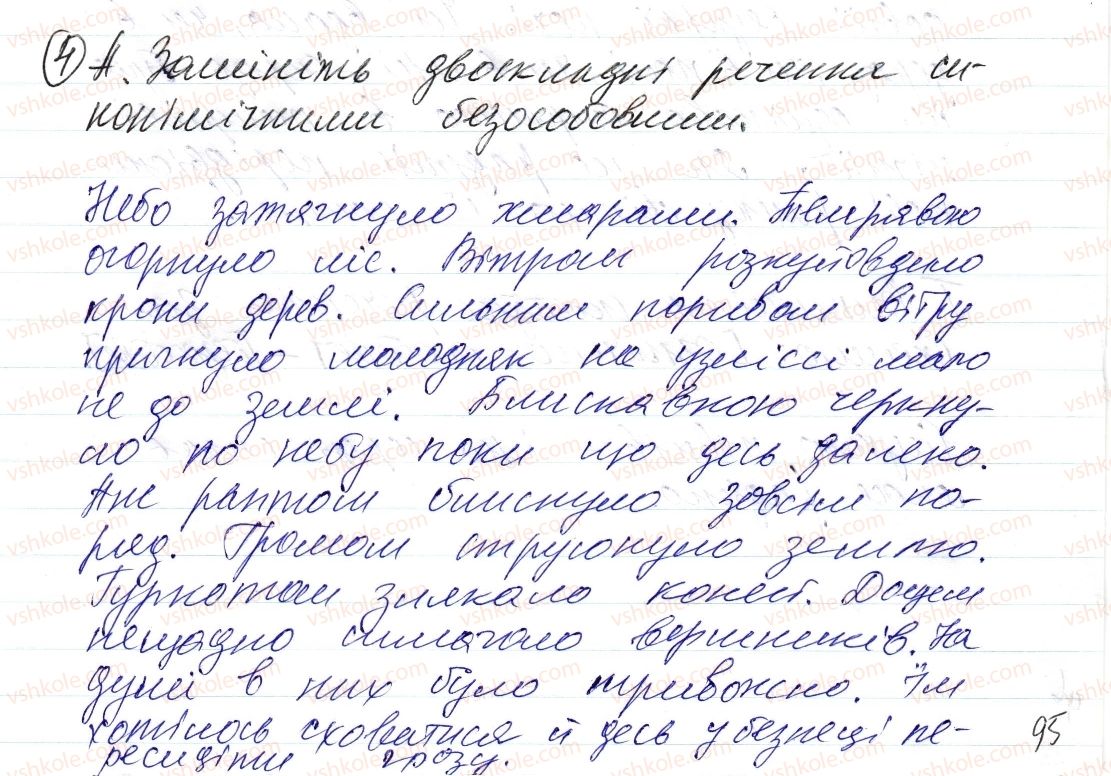 4 А. Замініть двоскладні речення си-
нонімічними безособовими.
Небо затягнуло хмарами. Темрявою
огорнуло ліс. Вітром розкуйовдило
крони дерев. Сильним поривом вітру
пригнуло молодняк на узліссі мало
не до землі. Блискавкою черкну-
ло по небу поки що десь далеко.
Аж раптом блиснуло зовсім по-
ряд. Громом струснуло землю.
Гуркотом злякало коней. Дощем
нещадно шмагало вершників. На
душі в них було тривожно. Їм
хотілось сховатися й десь у безпеці пе-
ресидіти грозу.
95